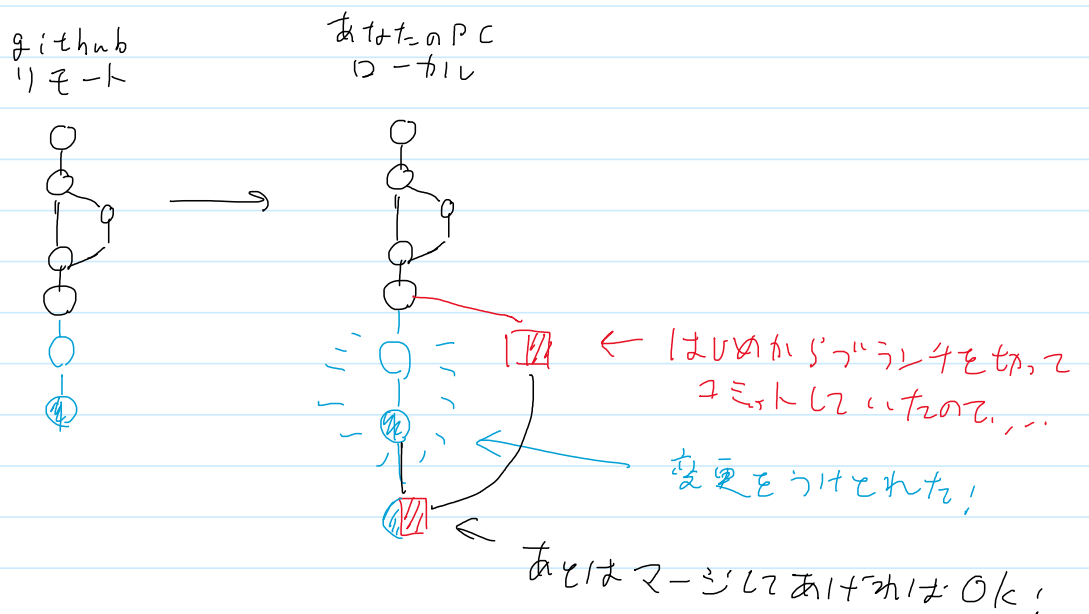 github
リモート
あなたのPC
ローカル
← はじめからブランチを切って
コミットしていたので、...
← 変更をうけとれた!
← あとはマージしてあげればOK!